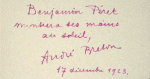 Benjamin Péret
mains
au soleil,
André Breton
17 décembre 1923.